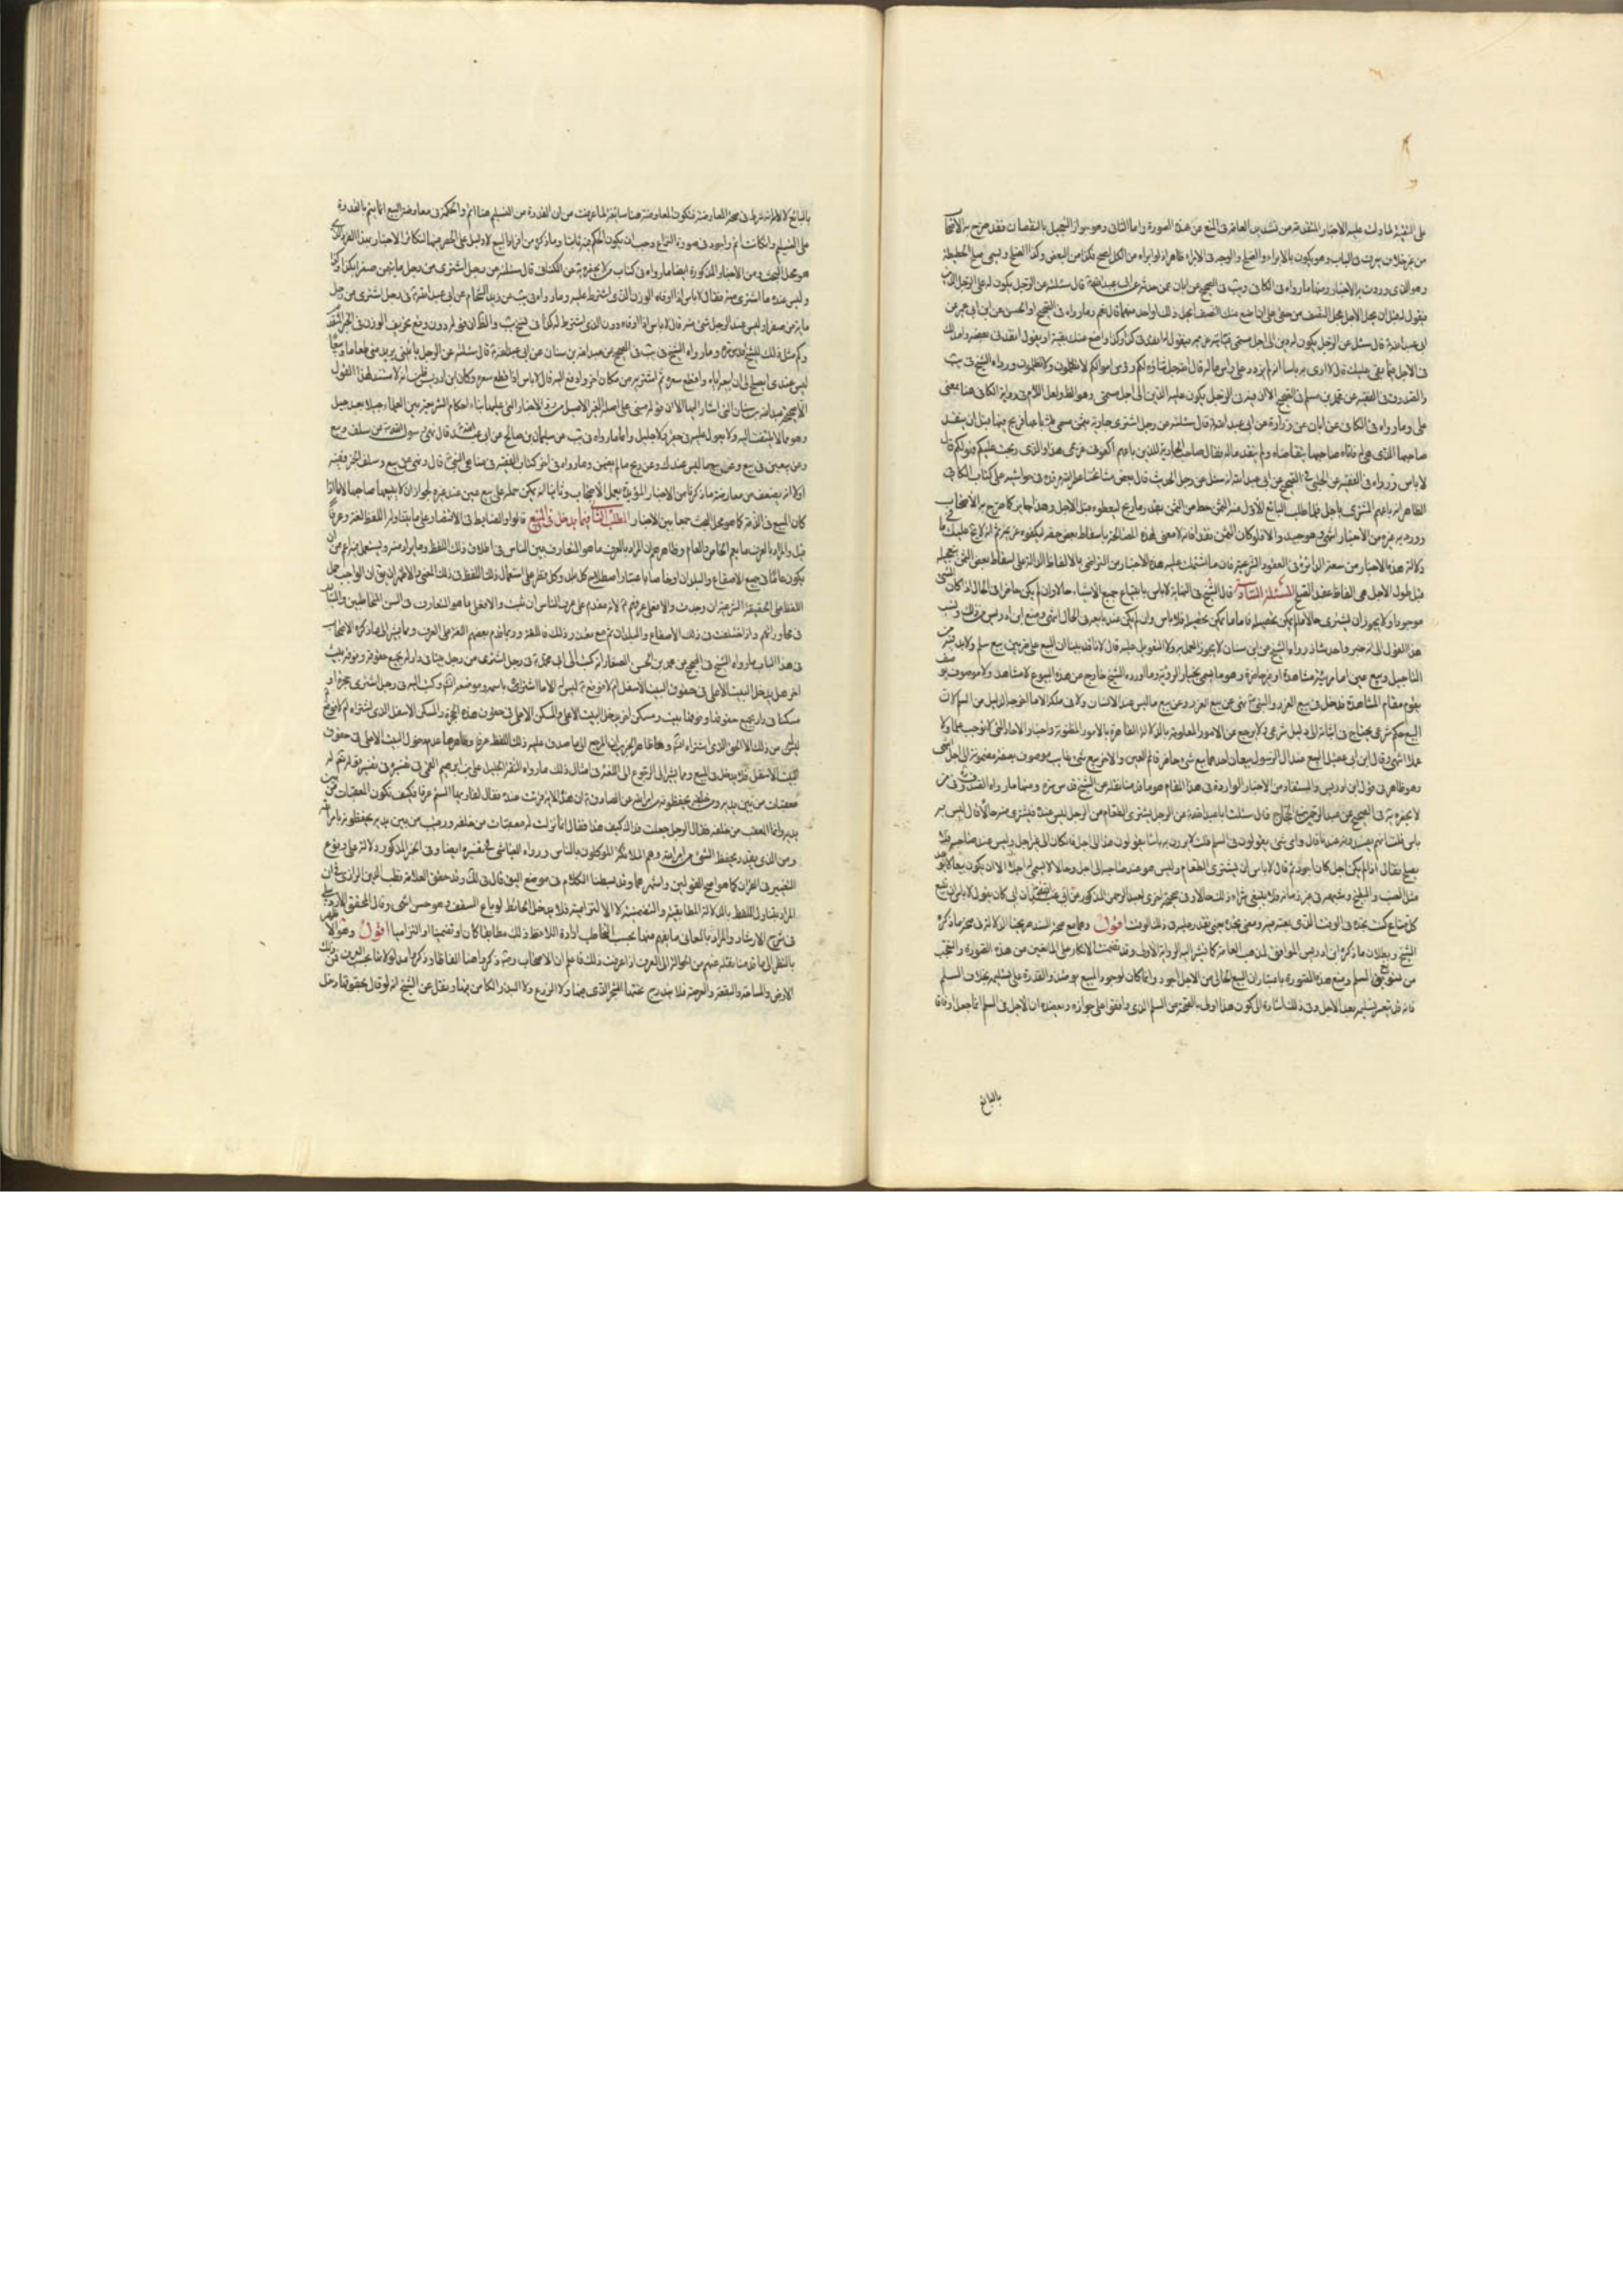 على التقية لما دلت عليه الاخبار المتقدمة من تشديد العامة في المنع من هذه الصورة واما الثاني وهو جواز التعجيل بالنقصان فقد صرح به الاصحاب
من غير خلاف يعرف في الباب وهو يكون بالابراء والصلح
وهو الذي وردت به الاخبار ومنها ما رواه في الكافي ويب في الصحيح عن ابان عمن حدثه عن ابي عبد الله ع قال سئلته عن الرجل يكون له على الرجل الدين
فيقول له قبل ان يحل الاجل عجل النصف من حقي على ان اضع عنك النصف ايحل ذلك لواحد منهما قال نعم وما رواه في الصحيح او الحسن عن ابن ابي عمير عن
ابي عبد الله ع قال سئل عن الرجل يكون له دين الى اجل مسمى فياتيه غريمه فيقول له انقدني كذا وكذا واضع عنك بقيته او يقول انقدني بعضه وامد لك
في الاجل فيما بقي عليك قال لا ارى به باسا انه لم يزدد على راس ماله قال الله عز وجل فلكم رؤس اموالكم لا تظلمون ولا تظلمون ورواه الشيخ في يب
والصدوق في الفقيه عن محمد بن مسلم في الصحيح الا ان فيه في الرجل يكون عليه الدين الى اجل مسمى وهو الظ ولعل اللام في رواية الكافي هنا بمعنى
على وما رواه في الكافي عن ابان عن زرارة عن ابي عبد الله ع قال سئلته عن رجل اشترى جارية بثمن مسمى ثم باعها فربح فيها قبل ان ينقد
صاحبها الذي هي له فاتاه صاحبها يتقاضاه ولم ينقد ماله فقال صاحب الجارية للذين باعهم اكفوني غريمي هذا والذي ربحت عليكم فهو لكم قال
لا باس ورواه في الفقيه عن الحلبي في الصحيح عن ابي عبد الله ع انه سئل عن رجل الحديث قال بعض مشايخنا عطر الله مرقده في حواشيه على كتاب الكافي
الظاهر انه باعهم المشتري باجل فلما طلب البائع الاول منه الثمن حط من الثمن بقدر ما ربح ليعطوه قبل الاجل وهذا جايز كما صرح به الاصحاب
وورد به غيره من الاخبار انتهى وهو جيد والا فلو كان الثمن نقدا فانه لا معنى لهذه المصالحة باسقاط بعض حقه ليكفوه غريمه
دلالة هذه الاخبار من سعة الدائرة في العقود الشرعية فان ما اشتملت عليه هذه الاخبار من التراضي بالالفاظ الدالة على اسقاط بعض الثمن بتعجيله
قبل حلول الاجل هي الفاظ عقد الصلح المسئلة السادسة قال الشيخ في النهاية لا باس بابتياع جميع الأشياء حالا وان لم يكن حاضرا في الحال اذا كان الشيء
موجودا ولا يجوز ان يشتري حالا ما لم يمكن تحصيله فاما ما يمكن تحصيله فلا باس وان لم يكن عند بايعه في الحال انتهى ومنع ابن ادريس من ذلك ونسب
هذا القول الى انه خبر واحد شاذ رواه الشيخ عن ابن سنان لا يجوز العمل به ولا التعويل عليه قال لانا قد بينا ان البيع على ضربين بيع سلم ولا بد فيه من
التاجيل وبيع عين اما مرئية مشاهدة او غير حاضرة
يقوم مقام المشاهدة فدخل في بيع الغرر والنبي ص نهى عن بيع الغرر وعن بيع ما ليس عند الانسان ولا في ملكه
البيع حكم شرعي يحتاج في اثباته الى دليل شرعي ولا يرجع عن الامور المعلومة بالدلالة القاهرة بالامور المظنونة واخبار الاحاد التي لا توجب علما ولا
عملا انتهى وقال ابن ابي عقيل البيع عند ال الرسول بيعان احدهما بيع شيء حاضر قائم العين والاخر بيع شيء غايب موصوف بصفة مضمونة الى اجل انتهى
وهو ظاهر في قول ابن ادريس والمستفاد من الاخبار الواردة في هذا المقام هو ما قدمنا نقله عن الشيخ قدس سره ومنها ما رواه الصدوق في من
لا يحضره يه في الصحيح عن عبد الرحمن بن الحجاج قال سئلت ابا عبد الله ع عن الرجل يشتري الطعام من الرجل ليس عنده فيشتري منه حالا قال ليس به
باس قلت انهم يفسدونه عندنا قال واي شيء يقولون في السلم قلت لا يرون به باسا يقولون هذا الى اجل فاذا كان الى غير اجل وليس عند صاحبه فلا
يصلح فقال اذا لم يكن اجل كان اجود ثم قال لا باس ان يشتري الطعام وليس هو عند صاحبه الى اجل وحالا لا يسمي له اجلا الا ان يكون بيعا لا يوجد
مثل العنب والبطيخ وشبهه في غير زمانه فلا ينبغي شراء ذلك حالا
كل متاع كنت تجده في الوقت الذي بعته فيه ومعنى تجده يعني تقدر عليه في ذلك الوقت اقول وهما مع صحة السند صريحتا الدلالة في صحة ما ذكره
الشيخ وبطلان ما ذكره ابن ادريس الموافق لمذهب العامة كما يشير اليه الرواية الاولى وقد تضمنت الانكار على المانعين من هذه الصورة والتعجب
من تجويزهم السلم ومنع هذه الصورة باعتبار ان البيع الخالي من الاجل اجود وانما كان لوجود المبيع يومئذ والقدرة على تسليمه بخلاف السلم
فانه قد يتعسر تسليمه بعد الاجل وفي ذلك اشارة الى كون هذا اولى بالصحة من السلم الذي وافقوا على جوازه ويعضده ان الاجل في السلم انما جعل ارفاقا
بالبائع
بالبائع لا لانه شرط في صحة المعاوضة فتكون المعاوضة هنا سائغة لما عرفت من ان القدرة من التسليم هنا اتم والحكمة في معاوضة البيع انما يتم بالقدرة
على التسليم ولما كانت اتم واجود في صورة النزاع وجب ان يكون الحكم فيه ثابتا وما ذكره من افراد البيع لا دليل على الحصر فيهما لتكاثر الاخبار بهذا الفرد الذي
هو محل البحث ومن الاخبار المذكورة ايضا ما رواه في كتاب من لا يحضره يه عن الكناني قال سئلته عن رجل اشترى من رجل مائة من صفرا بكذا وكذا
وليس عنده ما اشترى منه فقال لا باس اذا اوفاه الوزن الذي اشترط عليه وما رواه في يب عن زيد الشحام عن ابي عبد الله ع في رجل اشترى من رجل
مائة من صفرا وليس عند الرجل شيء منه قال لا باس اذا اوفاه دون الذي اشترط له
وما رواه الشيخ في يب في الصحيح عن عبد الله بن سنان عن ابي عبد الله ع قال سئلته عن الرجل ياتيني يريد مني طعاما وبيعا
ليس عندي ايصلح لي ان ابيعه اياه واقطع سعره ثم اشتريه من مكان اخر وادفع اليه قال لا باس اذا قطع سعره وكان ابن ادريس ظن انه لا مستند لهذا القول
الا صحيحة عبد الله بن سنان التي اشار اليها الا ان قوله مبني على اصله الغير الاصيل من رد الاخبار التي عليها بناء احكام الشريعة بين العلماء جيلا بعد جيل
وهو مما لا يلتفت اليه ولا يعول عليه في حقير ولا جليل واما ما رواه في يب عن سليمان بن صالح عن ابي عبد الله ع قال نهى رسول الله ص عن سلف وبيع
وعن بيعين في بيع وعن بيع ما ليس عندك وعن ربح ما لم يضمن وما رواه في اخر كتاب الفقيه في مناهي النبي ص قال ونهى عن بيع وسلف الخبر ففيه
اولا انه يضعف عن معارضة ما ذكرنا من الاخبار المؤيدة بعمل الاصحاب وثانيا انه يمكن حمله على بيع عين عند غيره لجواز ان لا يبيعها صاحبها اما اذا
كان المبيع في الذمة كما هو محل البحث جمعا بين الاخبار المطلب الثاني فيما يدخل في المبيع قالوا والضابط في الاقتصار على ما يتناوله اللفظ لغة وعرفا
قيل والمراد بالعرف ما يعم الخاص والعام وظاهرهم ان المراد بالعرف ما هو المتعارف بين الناس في اطلاق ذلك اللفظ وما يراد منه ويستعمل فيه اعم من ان
يكون عاما في جميع الاصقاع والبلدان او خاصا باعتبار اصطلاح كل بلد وكل قطر على استعمال ذلك اللفظ في ذلك المعنى والاظهر ان يق ان الواجب حمل
اللفظ على الحقيقة الشرعية ان وجدت والا فعلى عرفهم ع لانه مقدم على عرف الناس ان ثبت والا فعلى ما هو المتعارف في السن المتخاطبين والشايع
في محاوراتهم وان اختلفت في ذلك الاصقاع والبلدان ثم مع تعذر ذلك فاللغة وربما قدم بعضهم اللغة على العرف ومما يشير الى ما ذكره الاصحاب
في هذا الباب ما رواه الشيخ في الصحيح عن محمد بن الحسن الصفار انه كتب الى ابي محمد ع في رجل اشترى من رجل بيتا في دار له بجميع حقوقه وفوقه بيت
اخر هل يدخل البيت الاعلى في حقوق البيت الاسفل ام لا فوقع ع ليس له الا ما اشتراه باسمه وموضعه انشاء الله وكتب اليه في رجل اشترى حجرة او
مسكنا في دار بجميع حقوقها وفوقها بيوت ومسكن اخر يدخل البيوت الاعلى والمسكن الاعلى في حقوق هذه الحجرة والمسكن الاسفل الذي اشتراه ام لا فوقع ع
ليس له من ذلك الا الحق الذي اشتراه انشاء الله
البيت الاسفل فلا يدخل في المبيع ومما يشير الى الرجوع الى اللغة في امثال ذلك ما رواه الثقة الجليل علي بن ابراهيم القمي في تفسيره
معقبات من بين يديه ومن خلفه يحفظونه من امر الله عن الصادق ع ان هذه الاية قرئت عنده فقال لقاريها الستم عربا فكيف تكون المعقبات من بين
يديه وانما المعقب من خلفه فقال الرجل جعلت فداك كيف هذا فقال انما نزلت له معقبات من خلفه ورقيب من بين يديه يحفظونه بامر الله
ومن الذي يقدر يحفظ الشيء من امر الله وهم الملائكة الموكلون بالناس ورواه العياشي في تفسيره ايضا وفي الخبر المذكور دلالة على وقوع
التغيير في القران كما هو اصح القولين واشهرهما وقد بسطنا الكلام في موضع اليق
المراد بتناول اللفظ بالدلالة المطابقية والتضمنية لا الالتزامية فلا يدخل الحائط لو باع السقف وهو حسن انتهى وقال المحقق الاردبيلي
في شرح الارشاد والمراد بالمعاني ما يفهم منها بحسب التخاطب ارادة اللافظ ذلك مطابقا كان او تضمنيا او التزاميا اقول
بالنظر الى ما قدمنا نقله عنهم من الحوالة الى العرف اذا عرفت ذلك فاعلم ان الاصحاب رض ذكروا هنا الفاظا وذكروا مدلولاتها بحسب العرف فمن ذلك
الارض والساحة والبقعة والعرصة فلا يندرج تحتها الشجر الذي فيها ولا الزرع ولا البذر الكامن فيها ونقل عن الشيخ انه لو قال بحقوقها دخل